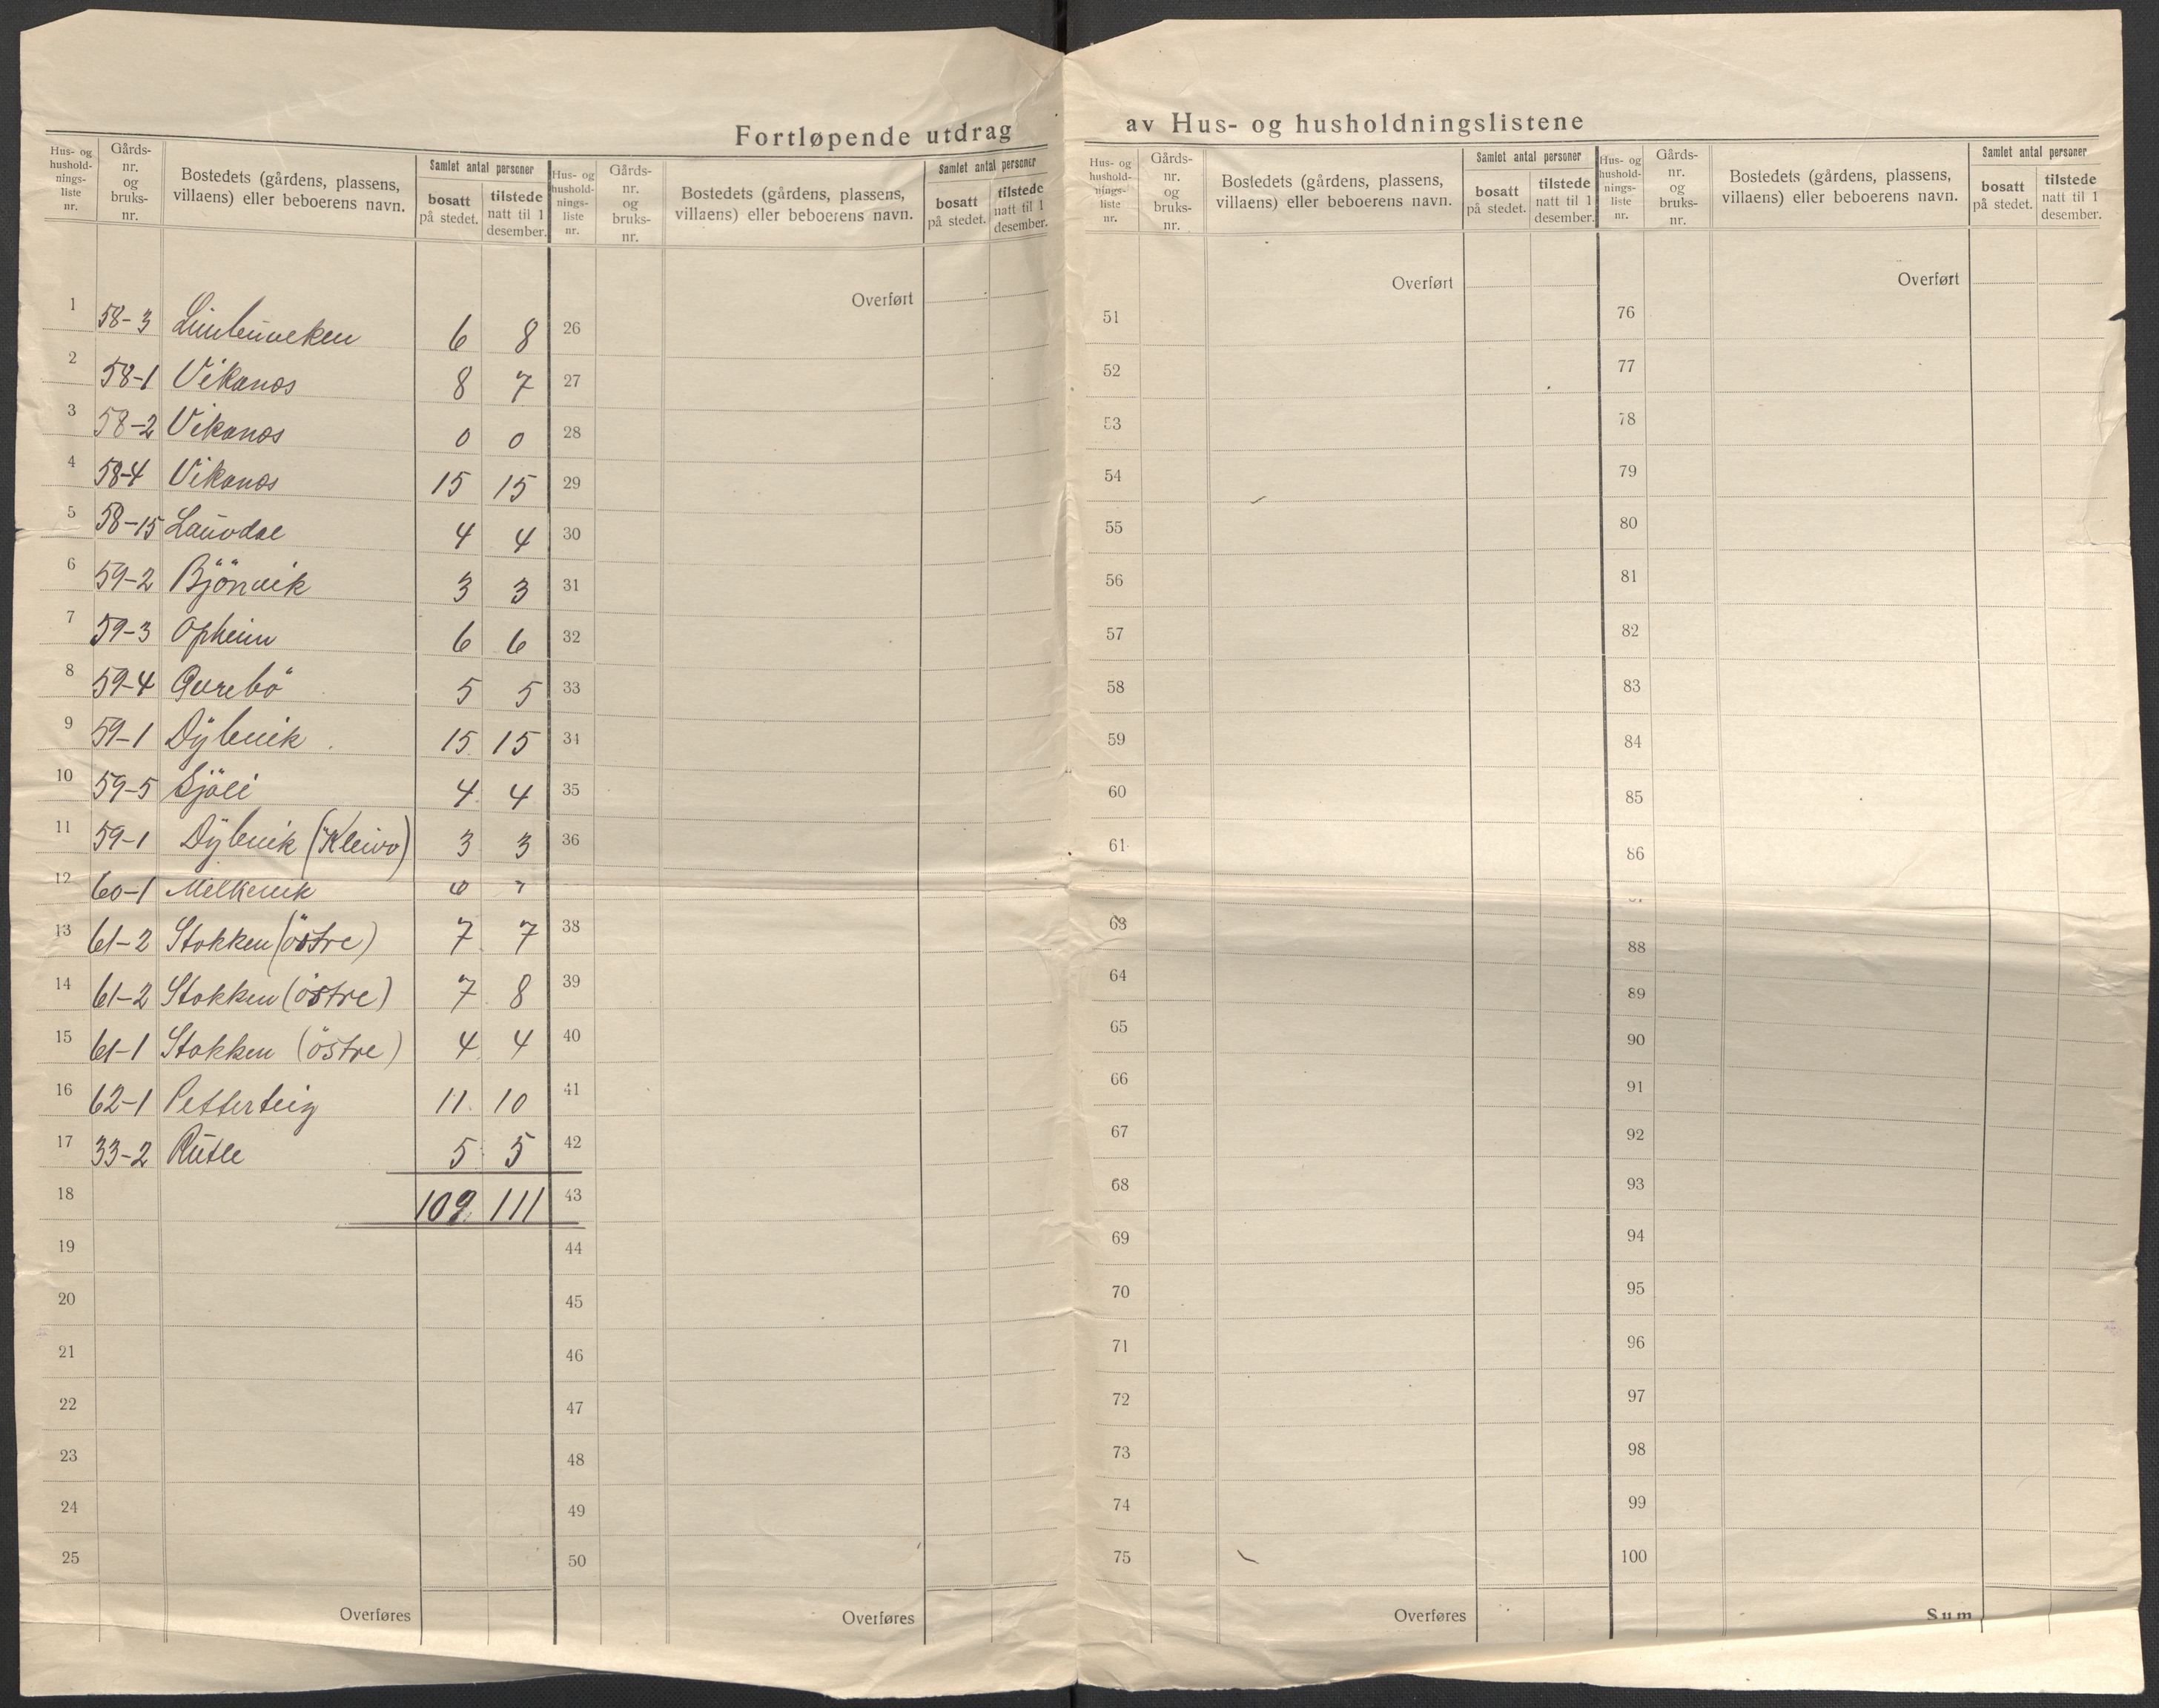 Fortløpende utdrag av Hus- og husholdningslistene
Hus- og hushold- nings- liste nr.
Gårds- nr. og bruks- nr.
Bostedets (gårdens, plassens, villaens) eller beboerens navn.
Samlet antal personer
bosatt på stedet.
tilstede natt til 1 desember.
Hus- og hushold- nings- liste nr.
Gårds- nr. og bruks- nr.
Bostedets (gårdens, plassens, villaens) eller beboerens navn.
Samlet antal personer
bosatt på stedet.
tilstede natt til 1 desember.
Hus- og hushold- nings- liste nr.
Gårds- nr. og bruks- nr.
Bostedets (gårdens, plassens, villaens) eller beboerens navn.
Samlet antal personer
bosatt på stedet.
tilstede natt til 1 desember.
Hus- og hushold- nings- liste nr.
Gårds- nr. og bruks- nr.
Bostedets (gårdens, plassens, villaens) eller beboerens navn.
Samlet antal personer
bosatt på stedet.
tilstede natt til 1 desember.
1 58-3 6 8
2 58-1 Vikanes 8 7
3 58-2 Vikanes 0 0
4 58-4 Vikanes 15 15
5 58-15 Lauvdal 4 4
6 59-2 Björnvik 3 3
7 59-3 Opheim 6 6
8 59-4 Qurebö 5 5
9 59-1 Dybvik 15 15
10 59-5 Sjöli 4 4
11 59-1 Dybvik (Kleivo) 3 3
12 60-1 Melkevik
13 61-2 Stokken (östre) 7 7
14 61-2 Stokken (östre) 7 8
15 61-1 Stokken (östre) 4 4
16 62-1 Petterteig 11 10
17 33-2 Rutle 5 5
18 109 111
19
20
21
22
23
24
25
Overføres
Overført
26
27
28
29
30
31
32
33
34
35
36
38
39
40
41
42
43
44
45
46
47
48
49
50
Overføres
Overført
51
52
53
54
55
56
57
58
59
60
61
63
64
65
66
67
68
69
70
71
72
73
74
75
Overføres
Overført
76
77
78
79
80
81
82
83
84
85
86
88
89
90
91
92
93
94
95
96
97
98
99
100
Sum